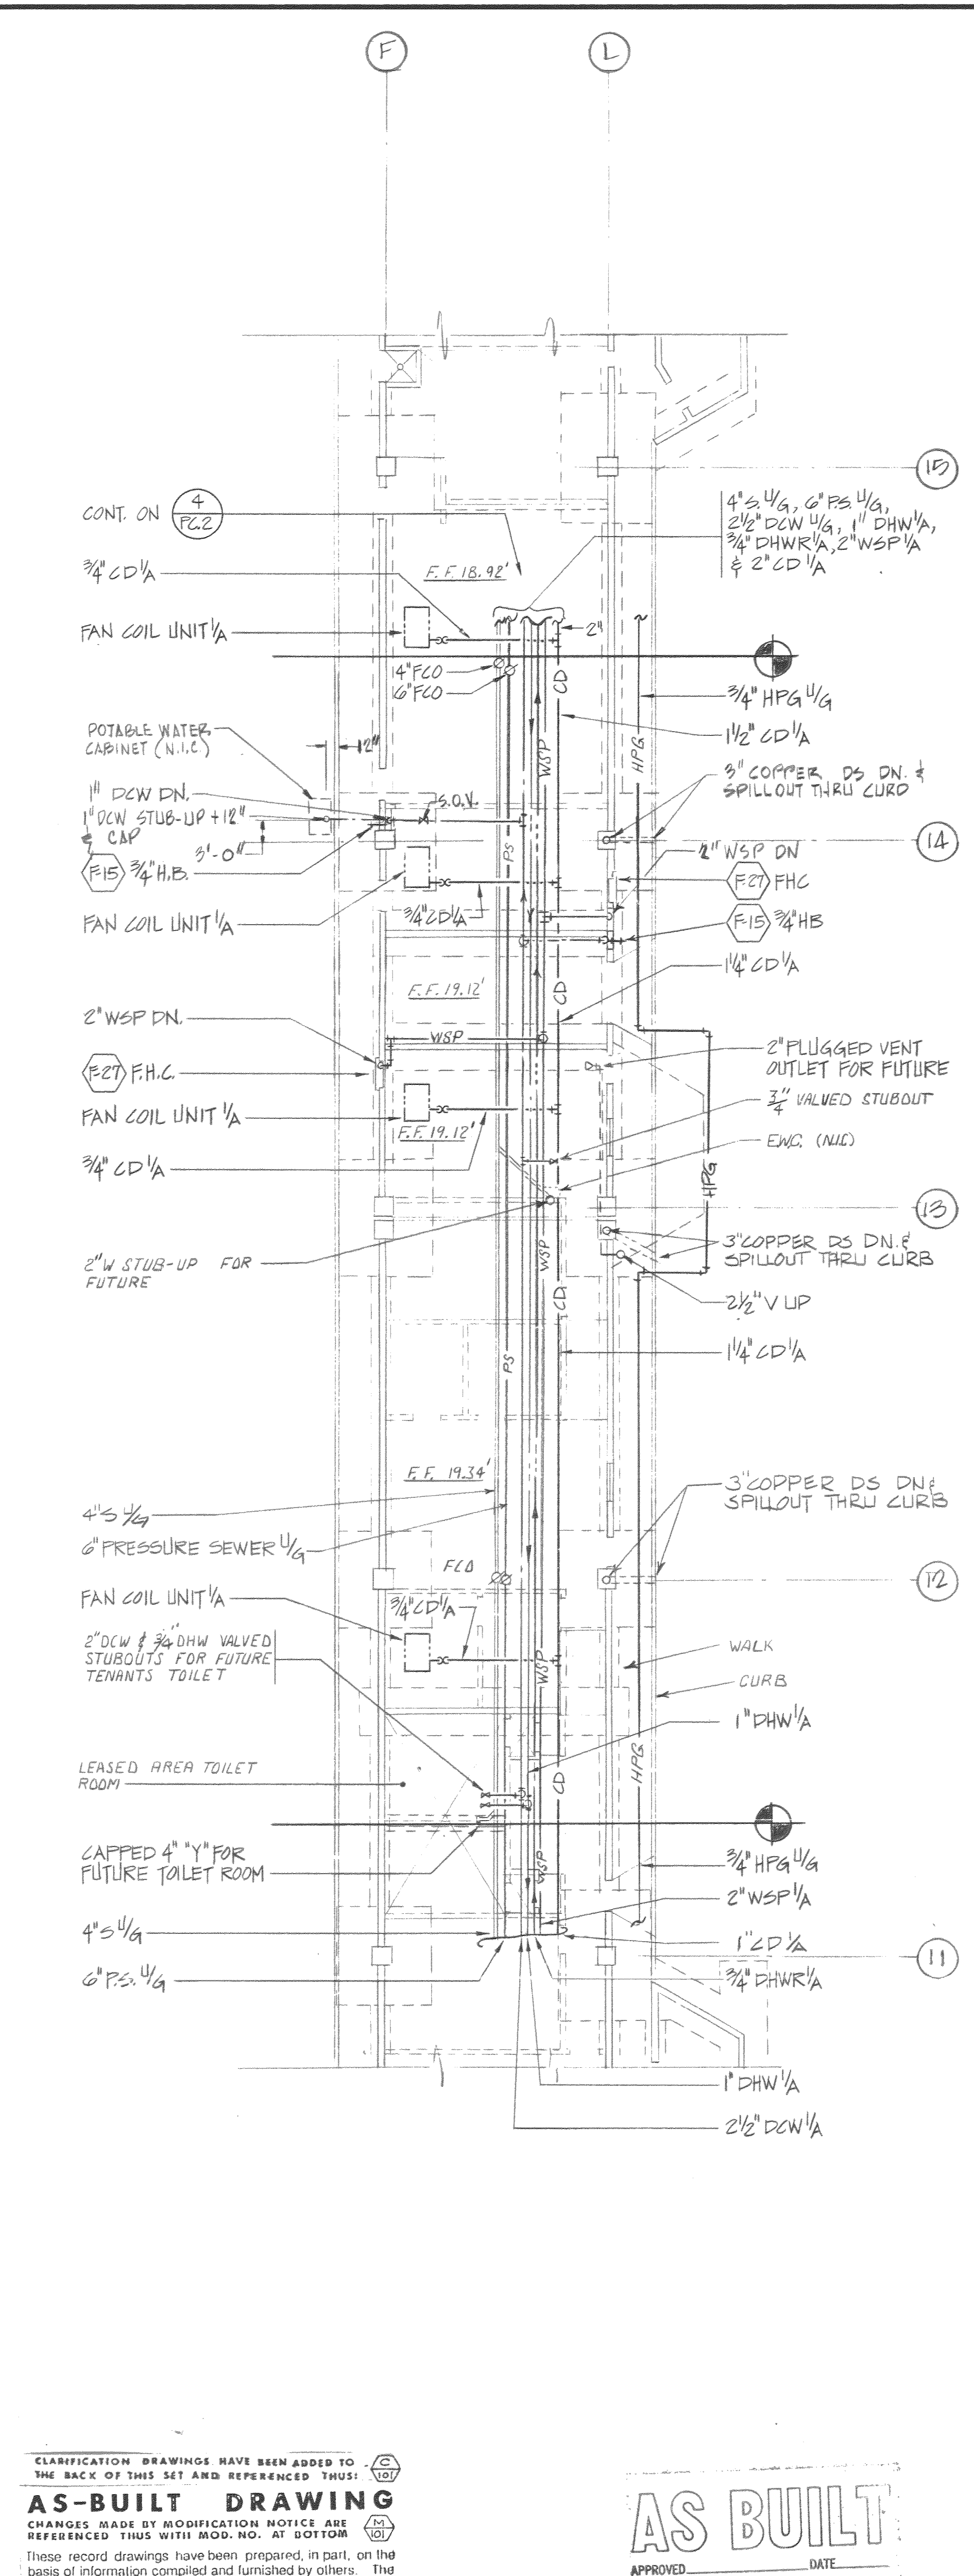 F
L
15
CONT. ON
4
PC.2
4"S. U/G, 6" P.S. U/G,
2½" DCW U/G, 1" DHW I/A,
¾" DHWR I/A, 2" WSP I/A
& 2" CD I/A
¾" CD I/A
F.F. 18.92'
FAN COIL UNIT I/A
2"
4" FCO
6" FCO
CD
¾" HPG U/G
POTABLE WATER
CABINET (N.I.C.)
12"
WSP
HPG
1½" CD I/A
3" COPPER DS DN. &
SPILLOUT THRU CURB
1" DCW DN.
S.O.V.
1" DCW STUB-UP +12"
& CAP
3'-0"
14
PS
2" WSP DN
F-15 ¾" H.B.
F-27 FHC
FAN COIL UNIT I/A
¾" CD I/A
F-15 ¾" HB
1¼" CD I/A
F.F. 19.12'
CD
2" WSP DN.
WSP
2" PLUGGED VENT
OUTLET FOR FUTURE
F-27 F.H.C.
¾" VALVED STUBOUT
FAN COIL UNIT I/A
F.F. 19.12'
E.W.C. (N.I.C)
¾" CD I/A
HPG
13
3" COPPER DS DN. &
SPILLOUT THRU CURB
2" W STUB-UP FOR
FUTURE
WSP
CD
2½" V UP
PS
1¼" CD I/A
F.F. 19.34'
3" COPPER DS DN &
SPILLOUT THRU CURB
4" S U/G
6" PRESSURE SEWER U/G
FCO
12
FAN COIL UNIT I/A
¾" CD I/A
2" DCW & ¾" DHW VALVED
STUBOUTS FOR FUTURE
TENANTS TOILET
WALK
WSP
CURB
1" DHW I/A
LEASED AREA TOILET
ROOM
CD
HPG
CAPPED 4" "Y" FOR
FUTURE TOILET ROOM
WSP
¾" HPG U/G
2" WSP I/A
4" S U/G
1" CD I/A
11
6" P.S. U/G
¾" DHWR I/A
1" DHW I/A
2½" DCW I/A
CLARIFICATION DRAWINGS HAVE BEEN ADDED TO
THE BACK OF THIS SET AND REFERENCED THUS:
C
101
AS-BUILT DRAWING
CHANGES MADE BY MODIFICATION NOTICE ARE
REFERENCED THUS WITH MOD. NO. AT BOTTOM
M
101
These record drawings have been prepared, in part, on the
basis of information compiled and furnished by others. The
AS BUILT
APPROVED DATE